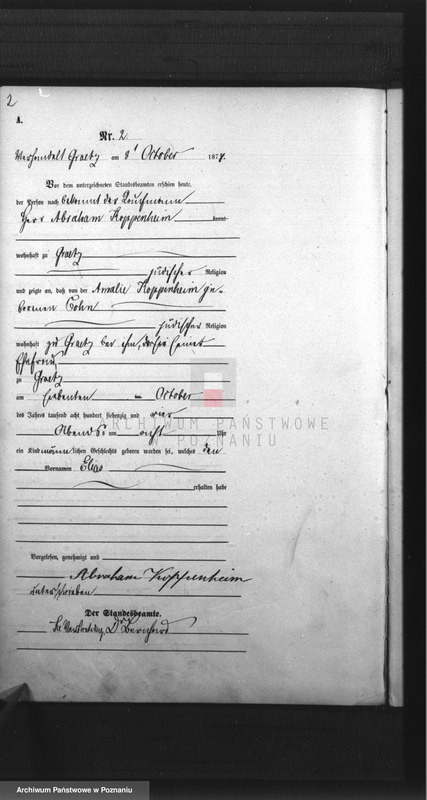 2
A.
Nr. 2
Verhandelt Graetz am 8t October 1874.
Vor dem unterzeichneten Standesbeamten erschien heute,
der Person nach bekannt der Kaufmann
Herr Abraham Koppenheim kannt
wohnhaft zu Graetz
jüdischer Religion
und zeigte an, daß von der Amalie Koppenheim ge-
borenen Cohn
jüdischer Religion
wohnhaft zu Graetz bei ihm
Ehefrau
zu Graetz
am siebenten October
des Jahres tausend acht hundert siebenzig und vier
Abends um acht Uhr
ein Kind männlichen Geschlechts geboren worden sei, welches den
Vornamen Elias
erhalten habe
Vorgelesen, genehmigt und
Abraham Koppenheim
unterschrieben
Der Standesbeamte.
In Vertretung Bernhard
ARCHIWUM PAŃSTWOWE
W POZNANIU
Archiwum Państwowe w Poznaniu